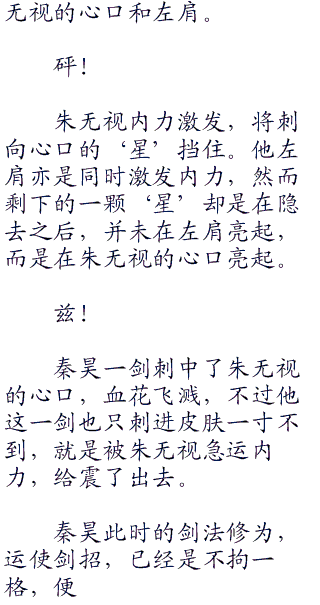 无视的心口和左肩。
砰！
朱无视内力激发，将刺
向心口的‘星’挡住。他左
肩亦是同时激发内力，然而
剩下的一颗‘星’却是在隐
去之后，并未在左肩亮起，
而是在朱无视的心口亮起。
兹！
秦昊一剑刺中了朱无视
的心口，血花飞溅，不过他
这一剑也只刺进皮肤一寸不
到，就是被朱无视急运内
力，给震了出去。
秦昊此时的剑法修为，
运使剑招，已经是不拘一
格，便